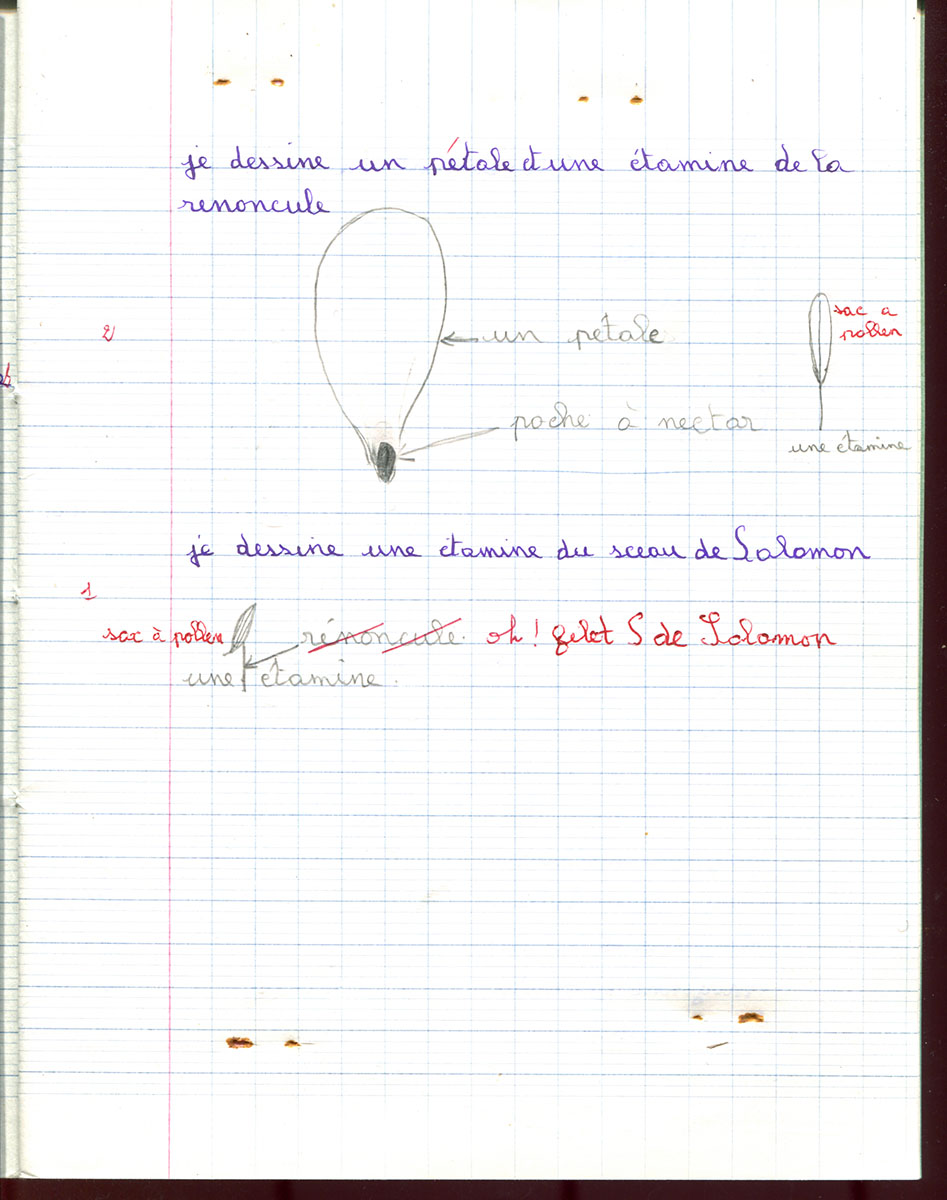 je dessine un pétale et une étamine de la
renoncule
2
un pétale
sac a
pollen
poche à nectar
une étamine
je dessine une étamine du sceau de Salomon
1
sac à pollen
rénoncule. oh! S de Salomon
une étamine.